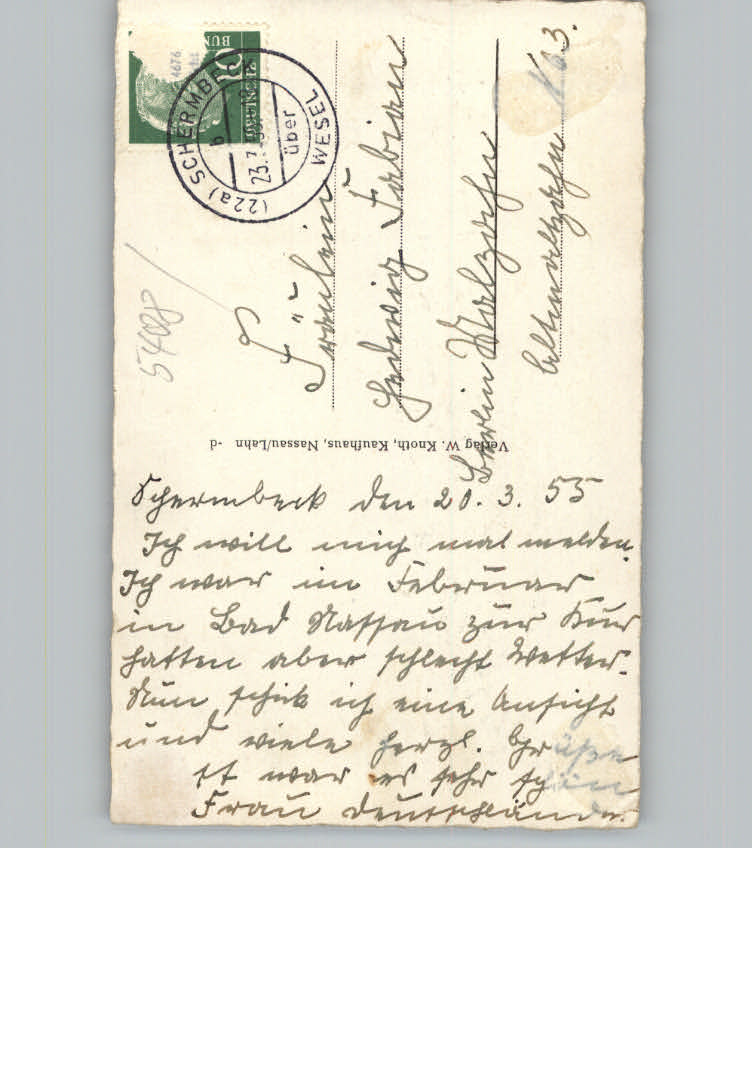 Schermbeck den 20. 3. 55
Ich will mich mal melden.
Ich war im Februar
in Bad Nassau zur Kur
hatten aber schlecht Wetter.
Nun schik ich eine Ansicht
und viele herzl. Grüße
war es sehr schön
Frau Deutschländer.
Verlag W. Knoth, Kaufhaus, Nassau/Lahn -d
Fräulein
Hedwig Fabian
Berlin Malzahn
Altmalzahn 163.
5408
(22a) SCHERMBECK
b
23.
über
WESEL
10
DEUTSCHE
BUN
4676